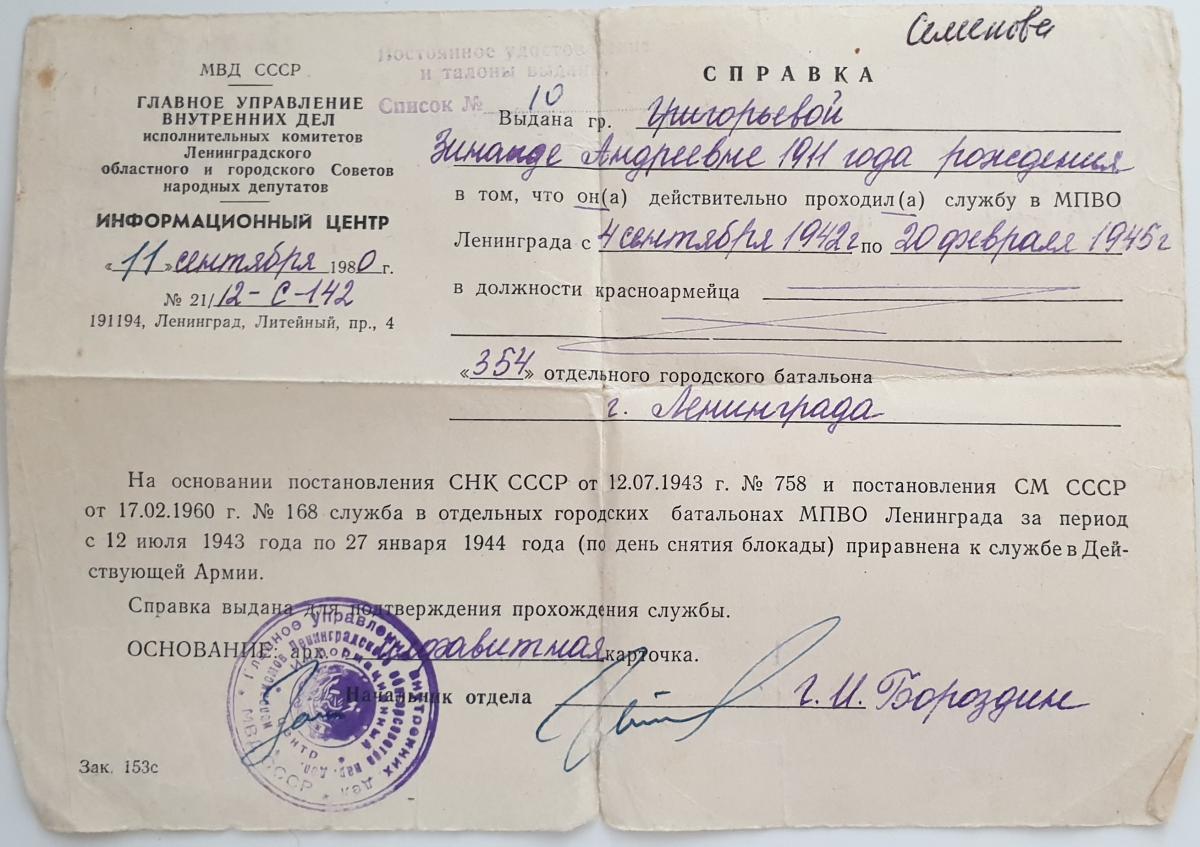 Семенова
МВД СССР
ГЛАВНОЕ УПРАВЛЕНИЕ
ВНУТРЕННИХ ДЕЛ
исполнительных комитетов
Ленинградского
областного и городского Советов
народных депутатов
ИНФОРМАЦИОННЫЙ ЦЕНТР
«11» сентября 1980 г.
№ 21/12-С-142
191194, Ленинград, Литейный, пр., 4
Постоянное
и талоны
Список № 10
СПРАВКА
Выдана гр. Григорьевой
Зинаиде Андреевне 1911 года рождения
в том, что он(а) действительно проходил(а) службу в МПВО
Ленинграда с 4 сентября 1942г по 20 февраля 1945г
в должности красноармейца
«354» отдельного городского батальона
г. Ленинграда
На основании постановления СНК СССР от 12.07.1943 г. № 758 и постановления СМ СССР
от 17.02.1960 г. № 168 служба в отдельных городских батальонах МПВО Ленинграда за период
с 12 июля 1943 года по 27 января 1944 года (по день снятия блокады) приравнена к службе в Дей-
ствующей Армии.
Справка выдана для подтверждения прохождения службы.
ОСНОВАНИЕ: арх. алфавитная карточка.
Начальник отдела Г. И. Бороздин
Главное управление внутренних дел
МВД СССР
Информационный
центр
Зак. 153с